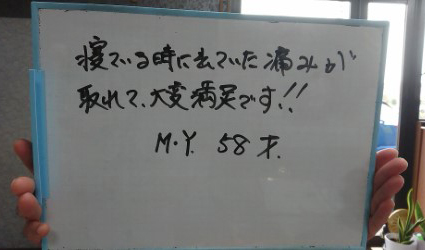 寝ている時に出ていた痛みが
取れて、大変満足です!!
M・Y. 58才.